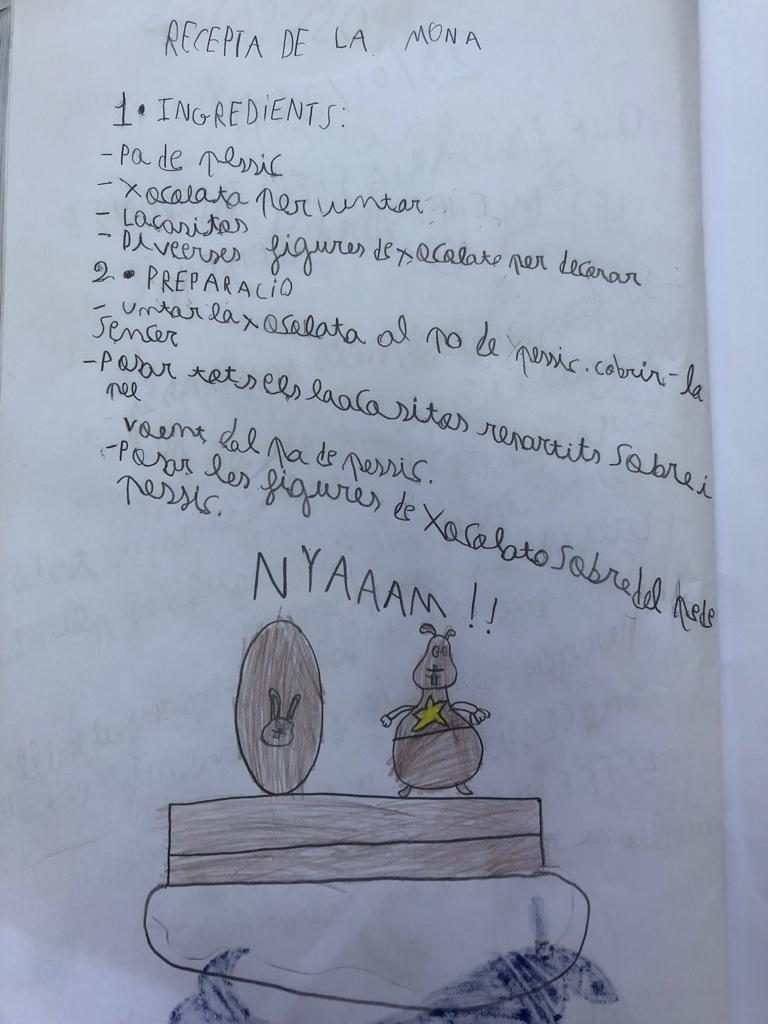 RECEPTA DE LA MONA
1. INGREDIENTS:
- Pa de pessic
- Xocolata per untar
- Lacasitos
- Diverses figures de xocolate per decorar
2. PREPARACIO
- untar la xocolata al pa de pessic. cobrir-la
sencer
- Posar tots els laacasitos repartits sobre i
pel
voent del pa de pessic.
- Posar les figures de xocolato sobre del pede
pessic.
NYAAAM !!